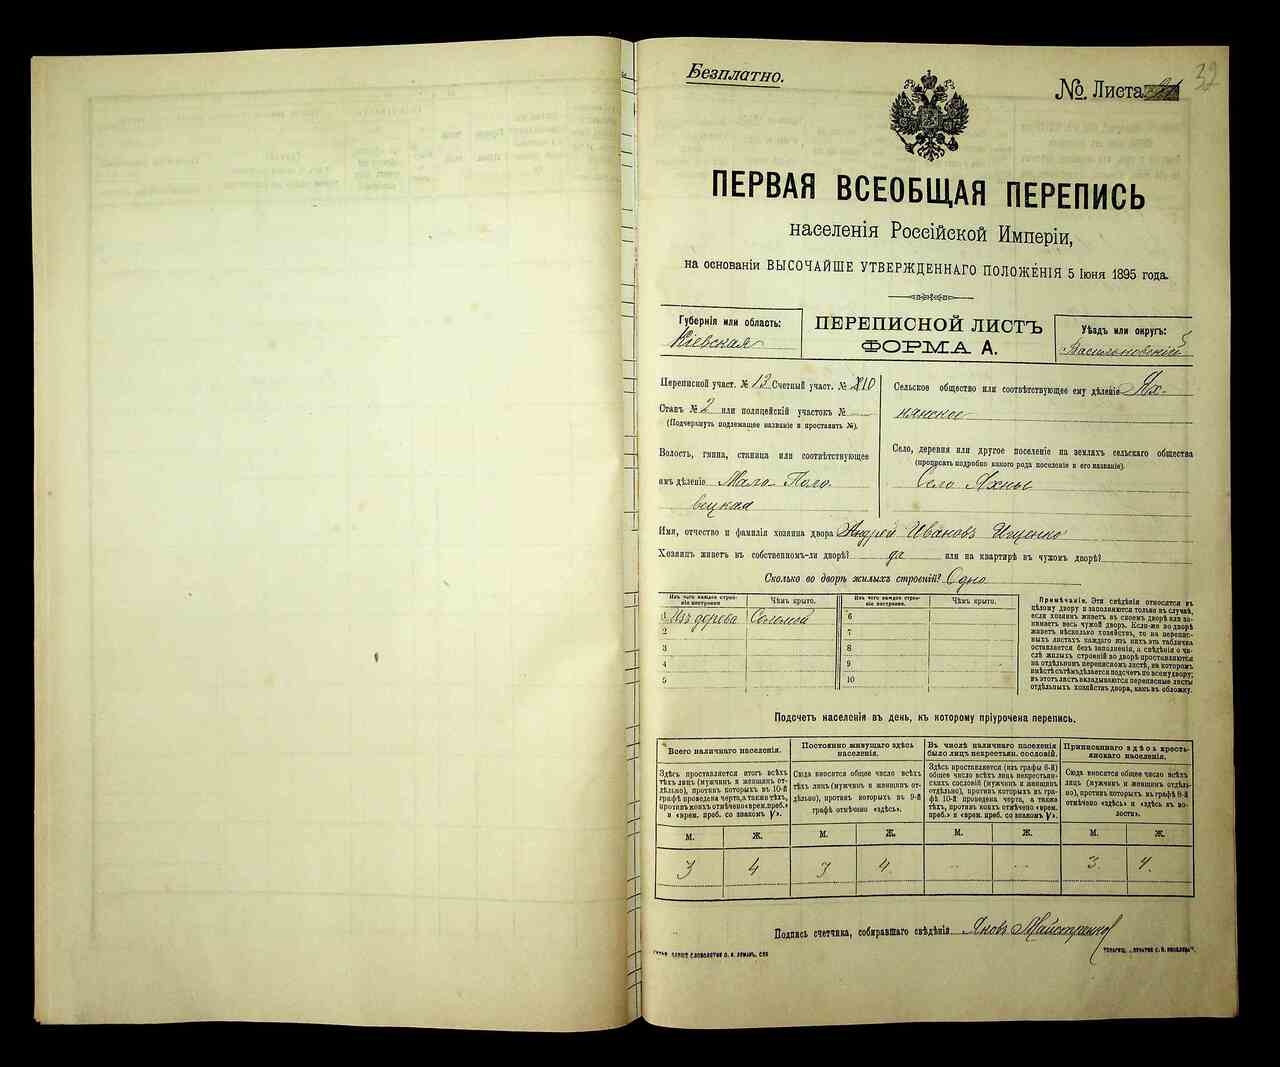 Безплатно.
№ Листа
32
ПЕРВАЯ ВСЕОБЩАЯ ПЕРЕПИСЬ
населенія Россійской Имперіи,
на основаніи ВЫСОЧАЙШЕ УТВЕРЖДЕННАГО ПОЛОЖЕНІЯ 5 Іюня 1895 года.
Губернія или область:
Кіевская
ПЕРЕПИСНОЙ ЛИСТЪ
ФОРМА А.
Уѣздъ или округъ:
Васильковскій
Переписной участ. № 13 Счетный участ. № 10
Станъ № 2 или полицейскій участокъ №
(Подчеркнуть подлежащее названіе и проставить №).
Волость, гмина, станица или соотвѣтствующее
имъ дѣленіе Мало-Поло-
вецкая
Сельское общество или соотвѣтствующее ему дѣленіе Ях-
нянское
Село, деревня или другое поселеніе на земляхъ сельскаго общества
(прописать подробно какого рода поселеніе и его названіе).
Село Яхны
Имя, отчество и фамилія хозяина двора Андрей Ивановъ Ищенко
Хозяинъ живетъ въ собственномъ-ли дворѣ? да или на квартирѣ въ чужомъ дворѣ?
Сколько во дворѣ жилыхъ строеній? Одно
Изъ чего каждое строе-
ніе построено. Чѣмъ крыто. Изъ чего каждое строе-
ніе построено. Чѣмъ крыто.
1 Изъ дерева Соломой 6
2 7
3 8
4 9
5 10
Примѣчаніе. Эти свѣдѣнія относятся къ
цѣлому двору и заполняются только въ случаѣ,
если хозяинъ живетъ въ своемъ дворѣ или за-
нимаетъ весь чужой дворъ. Если-же во дворѣ
живетъ нѣсколько хозяйствъ, то на перепис-
ныхъ листахъ каждаго изъ нихъ эта табличка
оставляется безъ заполненія, а свѣдѣнія о чи-
слѣ жилыхъ строеній во дворѣ проставляются
на отдѣльномъ переписномъ листѣ, на которомъ
вмѣстѣ съ тѣмъ дѣлается подсчетъ по всему двору;
въ этотъ листъ вкладываются переписные листы
отдѣльныхъ хозяйствъ двора, какъ въ обложку.
Подсчетъ населенія въ день, къ которому пріурочена перепись.
Всего наличнаго населенія.
Здѣсь проставляется итогъ всѣхъ
тѣхъ лицъ (мужчинъ и женщинъ от-
дѣльно), противъ которыхъ въ 10-й
графѣ проведена черта, а также тѣхъ,
противъ коихъ отмѣчено «врем. преб.»
и «врем. преб. со знакомъ V».
Постоянно живущаго здѣсь
населенія.
Сюда вносится общее число всѣхъ
тѣхъ лицъ (мужчинъ и женщинъ от-
дѣльно), противъ которыхъ въ 9-й
графѣ отмѣчено «здѣсь».
Въ числѣ наличнаго населенія
было лицъ некрестьян. сословій.
Здѣсь проставляется (изъ графы 6-й)
общее число всѣхъ лицъ некрестьян-
скихъ сословій (мужчинъ и женщинъ
отдѣльно), противъ которыхъ въ гра-
фѣ 10-й проведена черта, а также
тѣхъ, противъ коихъ отмѣчено «врем.
преб.» и «врем. преб. со знакомъ V».
Приписаннаго здѣсь кресть-
янскаго населенія.
Сюда вносится общее число тѣхъ
лицъ (мужчинъ и женщинъ отдѣль-
но), противъ которыхъ въ графѣ 8-й
отмѣчено «здѣсь» и «здѣсь въ во-
лости».
М. Ж. М. Ж. М. Ж. М. Ж.
3 4 3 4. - - 3. 4.
Подпись счетчика, собиравшаго свѣдѣнія Яковъ Майстренко